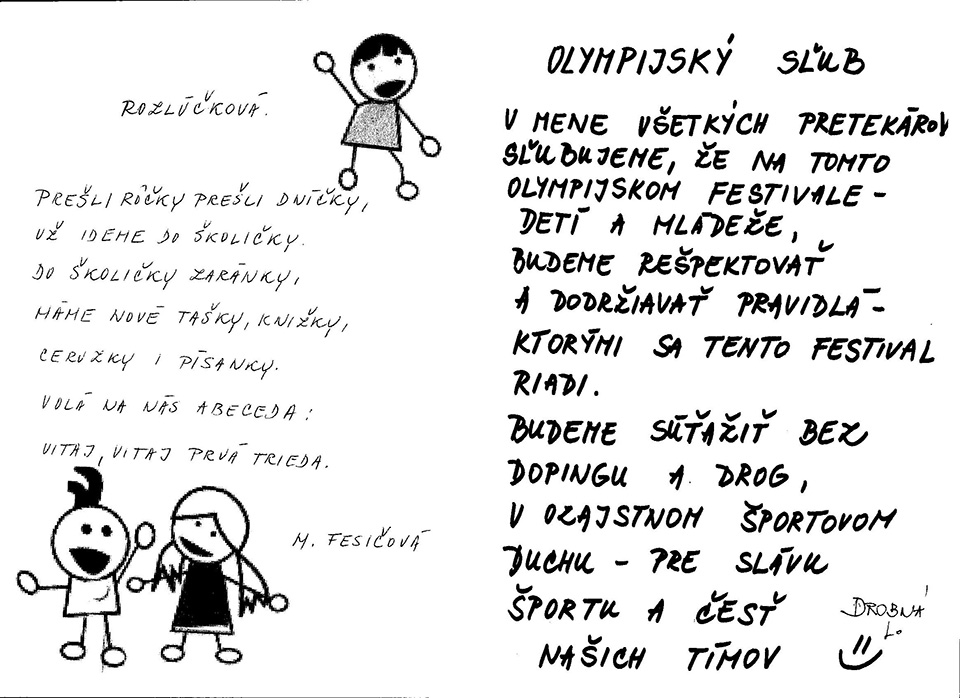 ROZLÚČKOVÁ.
PREŠLI RÔČKY PREŠLI DNÍČKY,
UŽ IDEME DO ŠKOLIČKY.
DO ŠKOLIČKY ZARÁNKY,
MÁME NOVÉ TAŠKY, KNIŽKY,
CERUZKY I PÍSANKY.
VOLÁ NA NÁS ABECEDA:
VITAJ, VITAJ PRVÁ TRIEDA.
M. FESIČOVÁ
OLYMPIJSKÝ SĽUB
V MENE VŠETKÝCH PRETEKÁROV
SĽUBUJEME, ŽE NA TOMTO
OLYMPIJSKOM FESTIVALE -
DETÍ A MLÁDEŽE,
BUDEME REŠPEKTOVAŤ
A DODRŽIAVAŤ PRAVIDLÁ -
KTORÝMI SA TENTO FESTIVAL
RIADI.
BUDEME SÚŤAŽIŤ BEZ
DOPINGU A DROG,
V OZAJSTNOM ŠPORTOVOM
DUCHU - PRE SLÁVU
ŠPORTU A ČESŤ
NAŠICH TÍMOV
DROBNÁ
L.